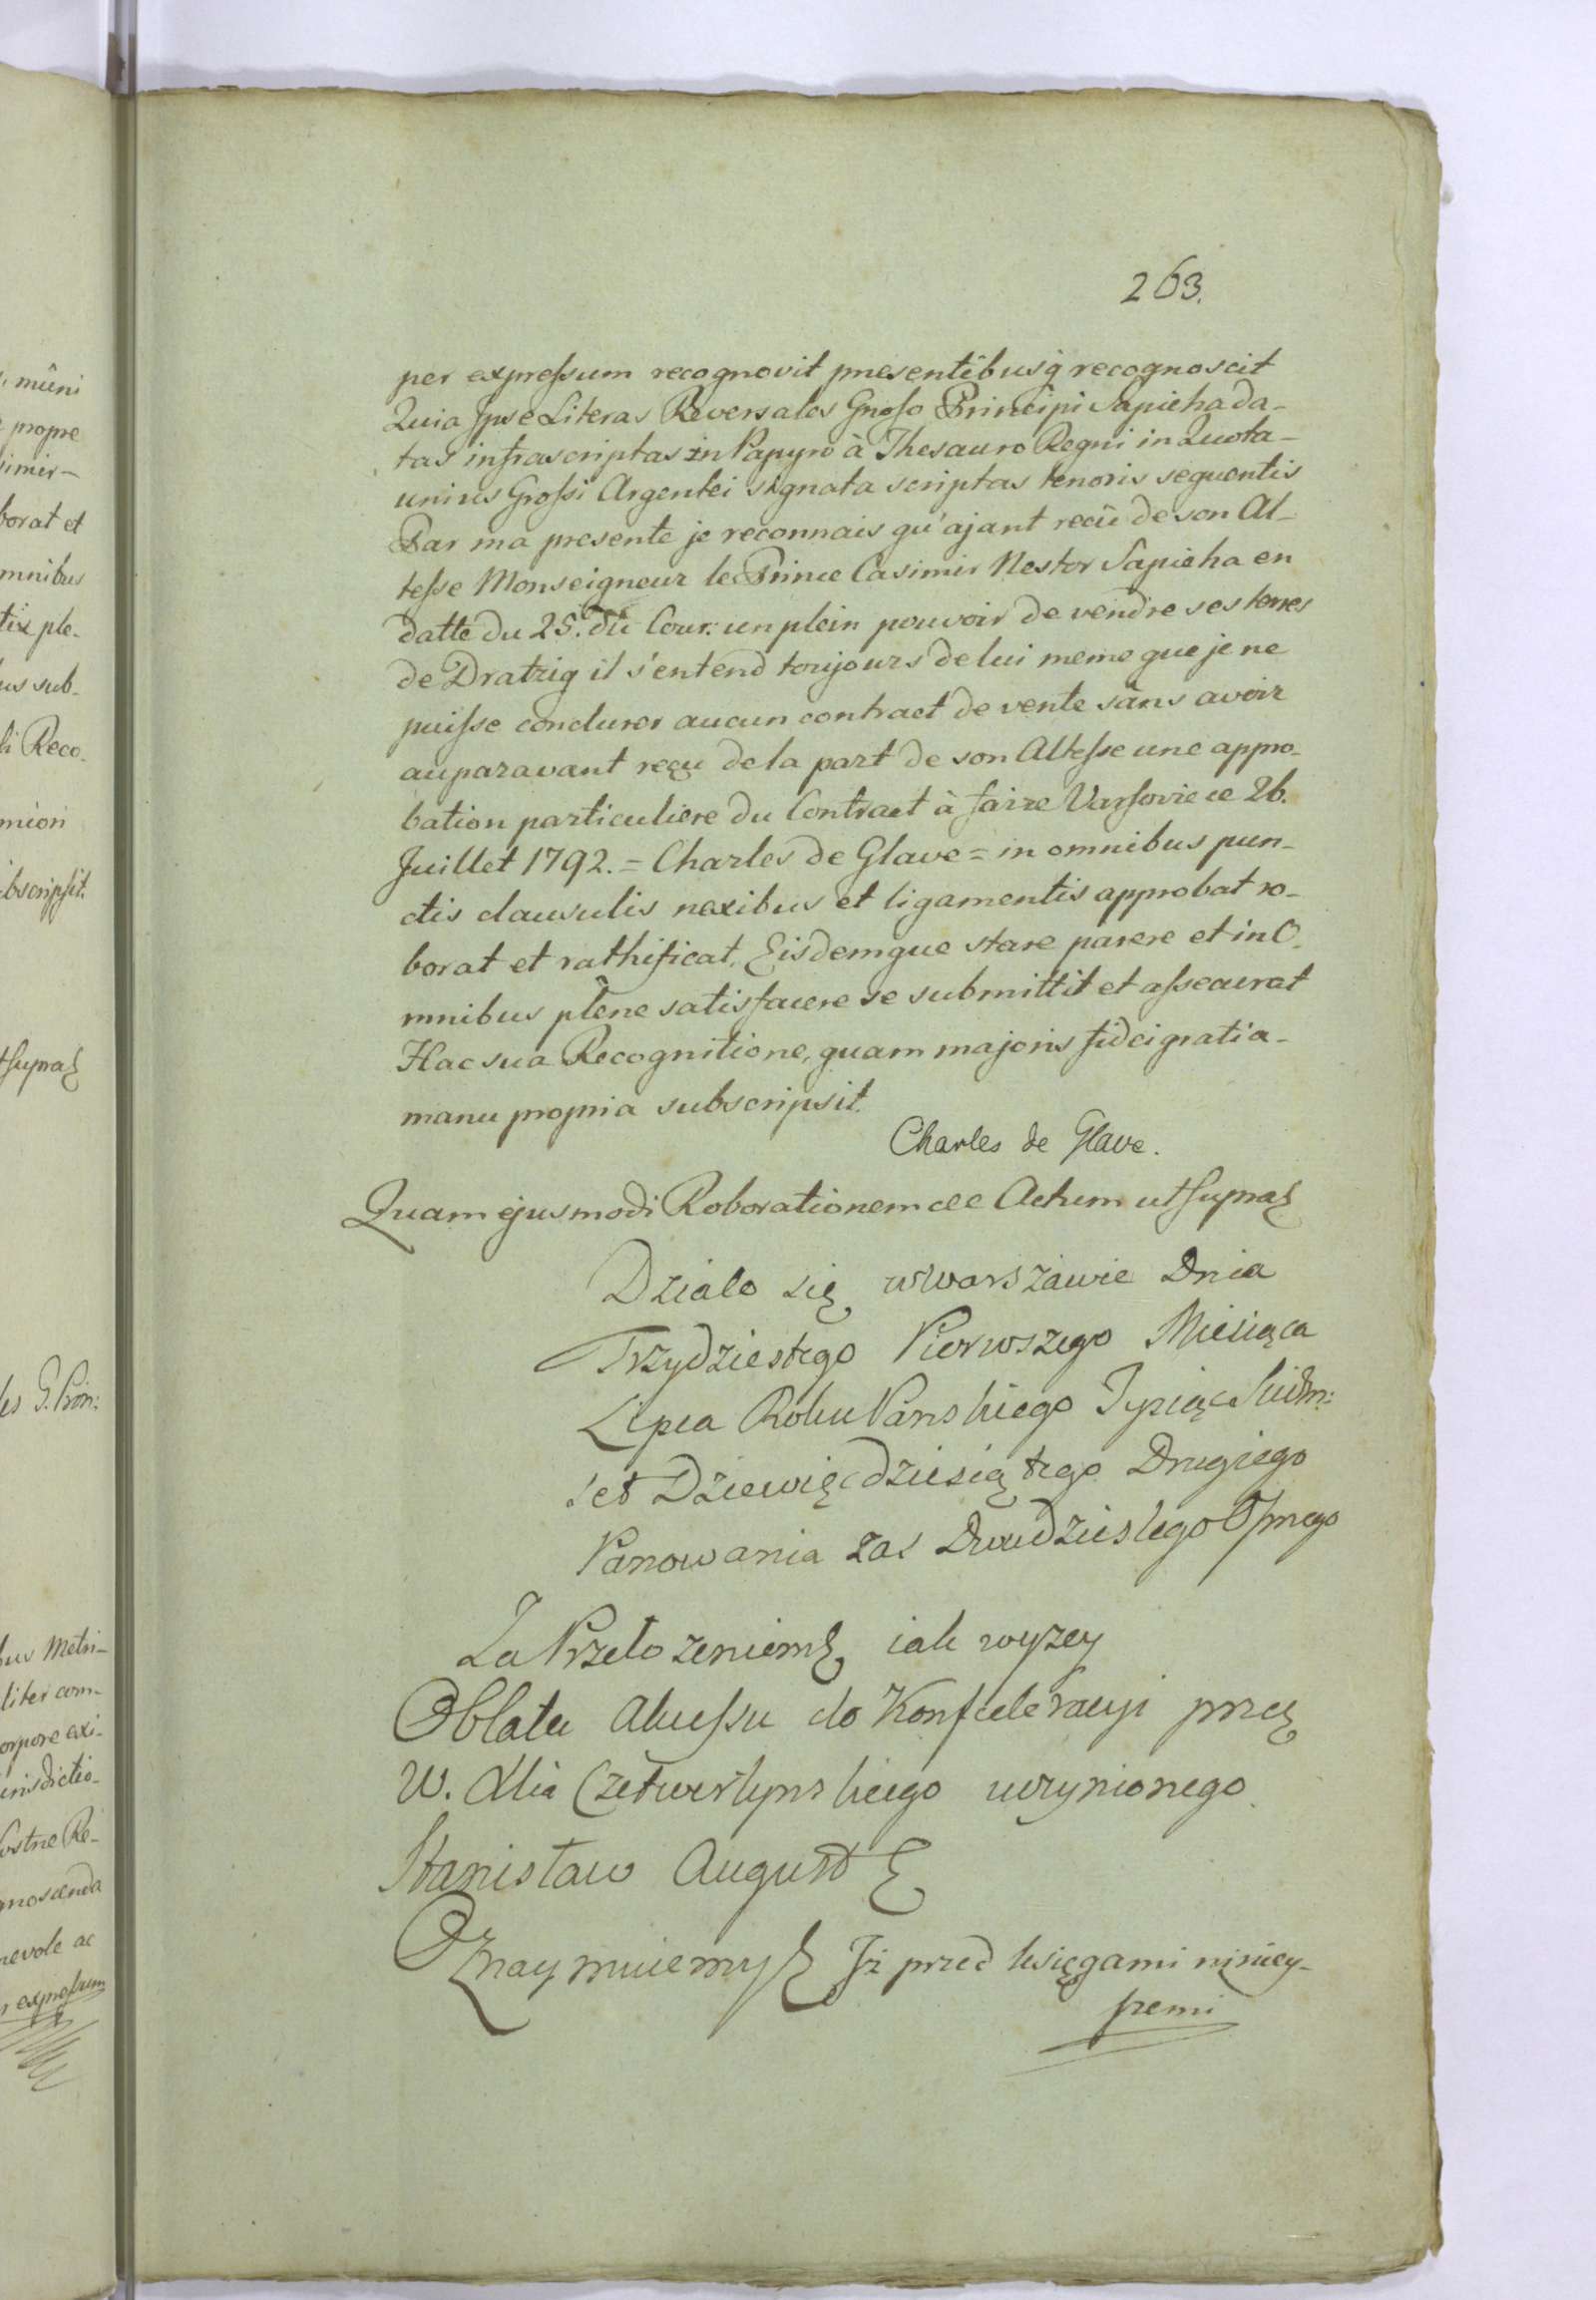 263.
per expressum recognovit pnesentibusq̀ recognoscit
Quia Ipse Literas Reversales Gnoso Principi Sapieha da-
tas infrascriptas in Papyro à Thesauro Regni in Quota-
unius Grossi Argentei signata scriptas tenoris sequentis
Par ma presente je reconnais qu'ajant recû de son Al-
tesse Monseigneur le Prince Casimir Nestor Sapieha en
datte du 25. du Cour: un plein pouvoir de vendre ses terres
de Dratzig il s'entend toujours de lui meme que je ne
puisse conclurer aucun contract de vente sans avoir
auparavant reçu de la part de son Altesse une appro-
bation particuliere du Contract à faire Varsovie ce 26.
Juillet 1792. = Charles de Glave = in omnibus pun-
ctis clausulis nexibus et ligamentis approbat ro-
borat et rathificat. Eisdemque stare parere et in O-
mnibus plene satisfacere se submittit et assecurat
Hac sua Recognitione, quam majoris fidei gratia-
manu propria subscripsit.
Charles de Glave.
Quam ejusmodi Roborationem ee Actum ut supra
Działo się w Warszawie Dnia
Trzydziestego Pierwszego Miesiąca
Lipca Roku Panskiego Tysiąc Siedm:
set Dziewięcdziesiątego Drugiego
Panowania zas Dwudziestego Osmego
Za Przełozeniem iak wyzey
Oblata Akcessu do Konfederacyi przez
W. Xcia Czetwertynskiego uczynionego
Stanisław August
Oznaymuiemy Iż przed księgami niniey-
szemi
muni
propre
simir-
borat et
omnibus
tix ple-
us sub-
li Reco-
mion
bscripsit.
t supra
les G. Prin:
bus Metri-
liter com-
orpore exi-
urisdictio-
ostræ Re-
gnoscenda
nevole ac
r expressum